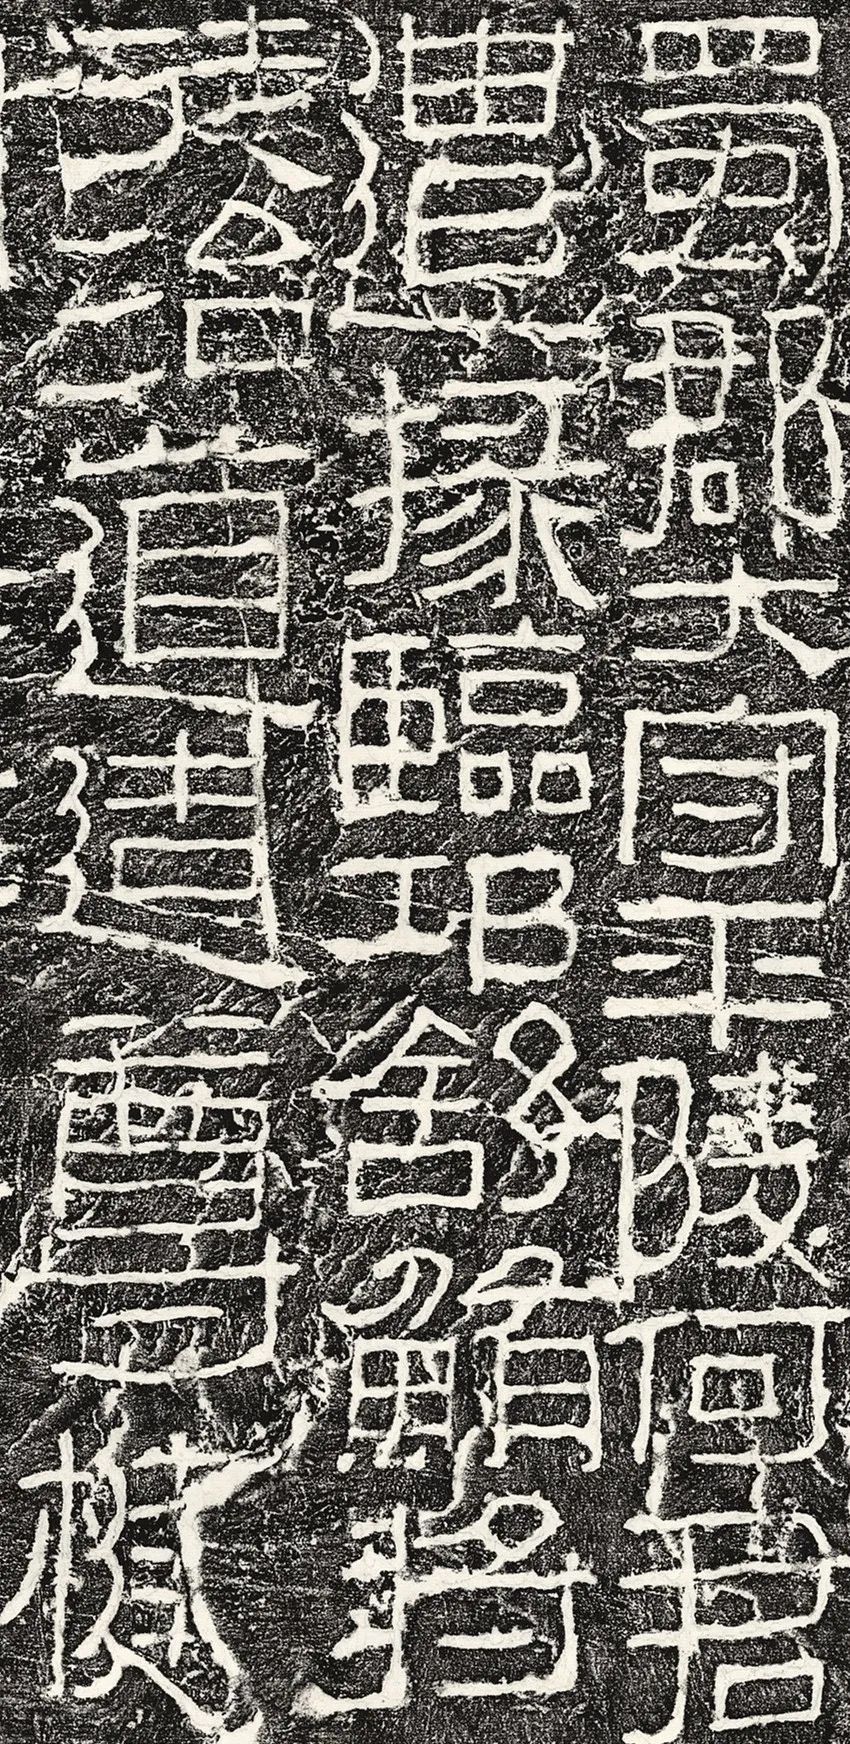 蜀郡大守平陵何君
遣掾臨邛舒鮪將
徒治道造尊楗